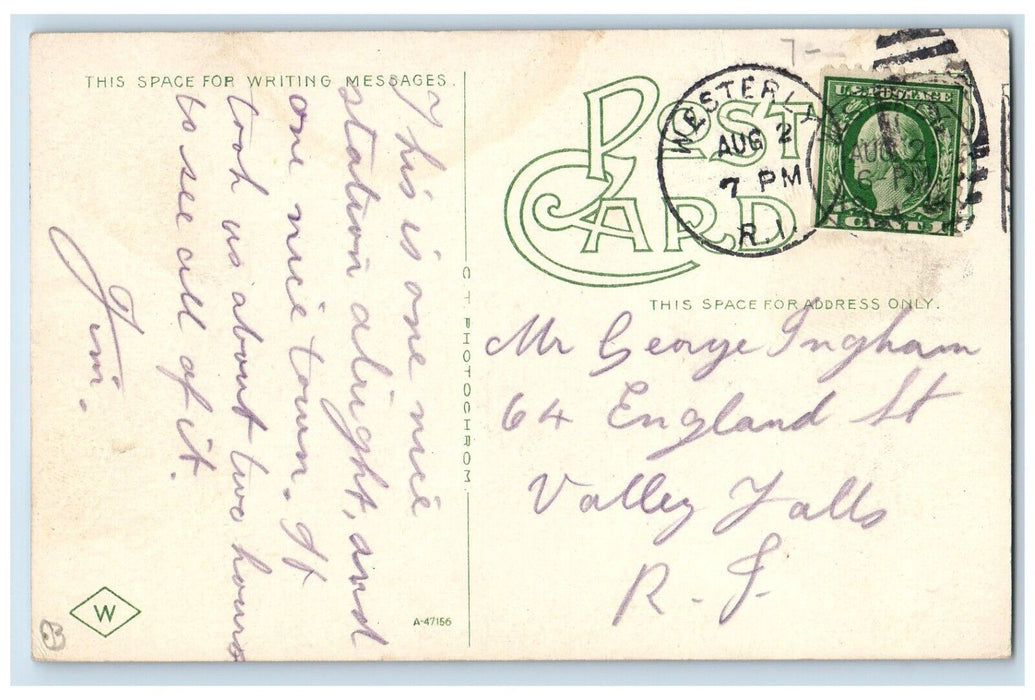 THIS SPACE FOR WRITING MESSAGES.
This is one nice
station alright, and
one nice town. It
took us about two hours
to see all of it.
Jim.
W
A-47156
C T PHOTOCHROM
POST CARD
WESTERLY
AUG 2
7 PM
R.I.
U.S. POSTAGE
AUG 2
6 PM
CENT
THIS SPACE FOR ADDRESS ONLY.
Mr George Ingham
64 England St
Valley Falls
R. I.